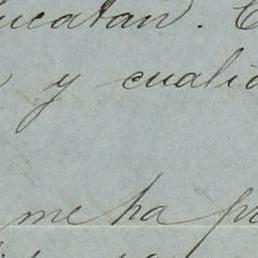 ucatan. C
y cuali
me ha pr